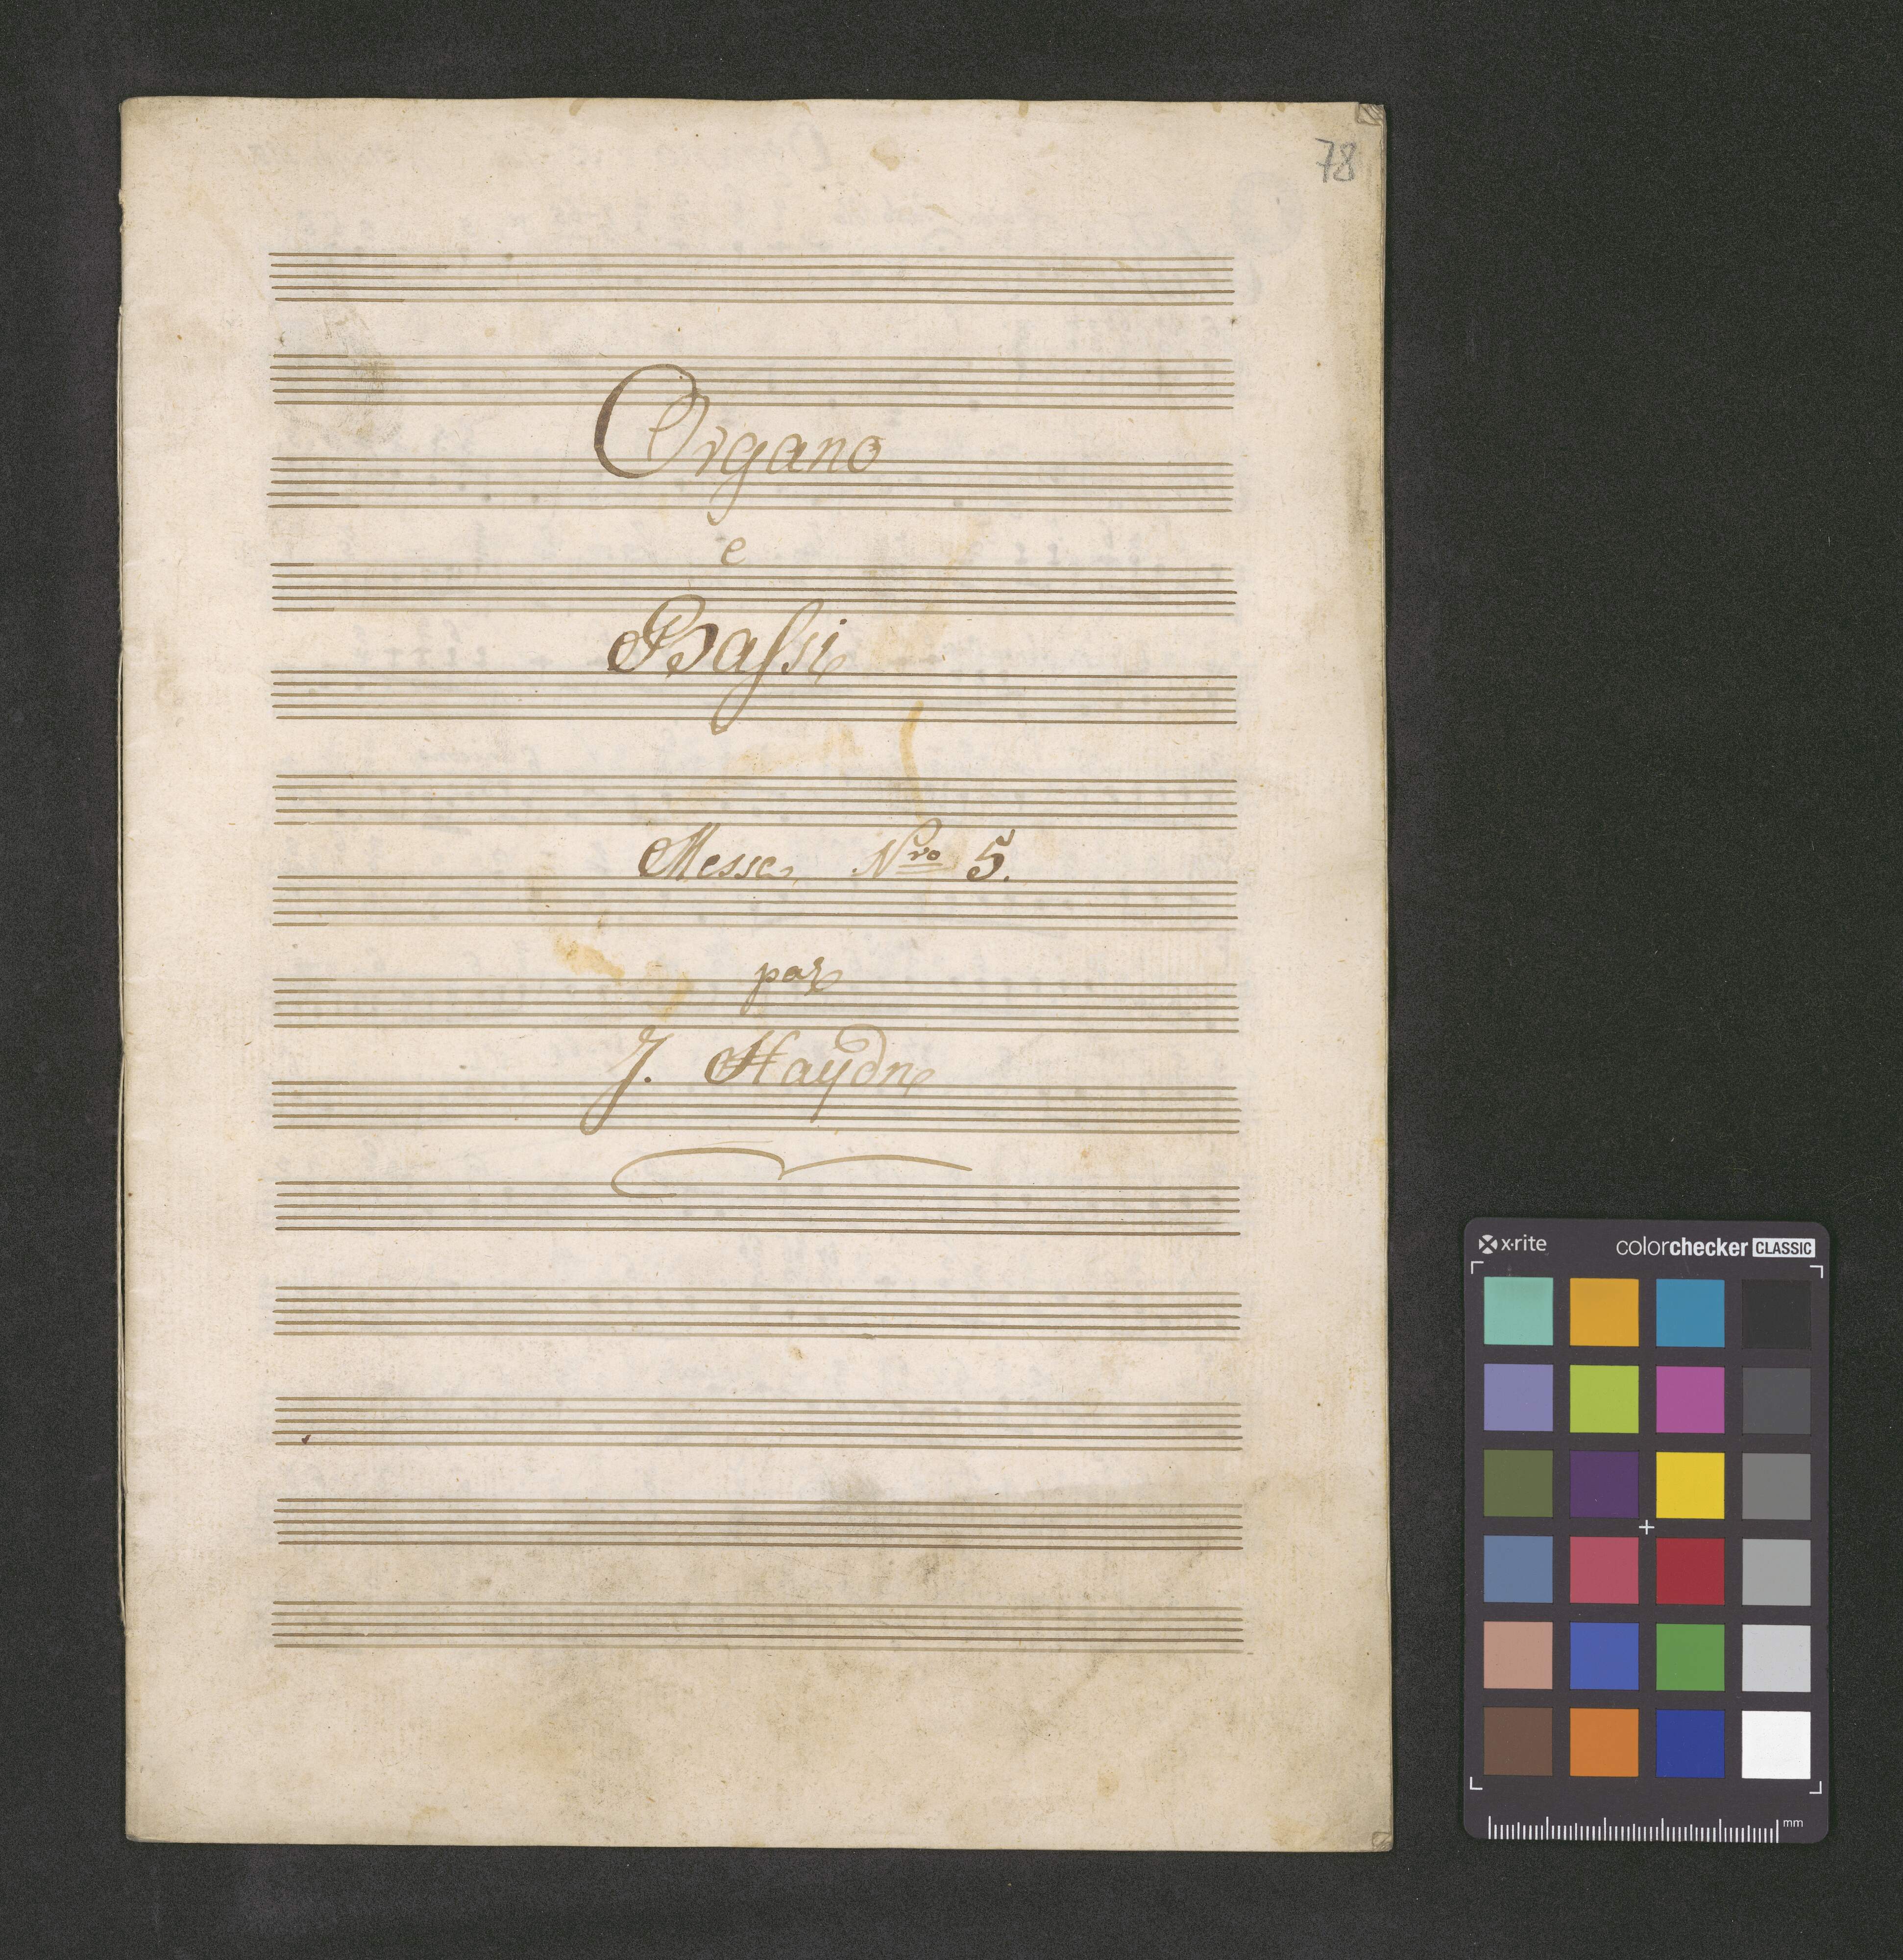 78
Organo
e
Bassi
Messe Nro 5.
par
J. Haydn
x·rite colorchecker CLASSIC
mm